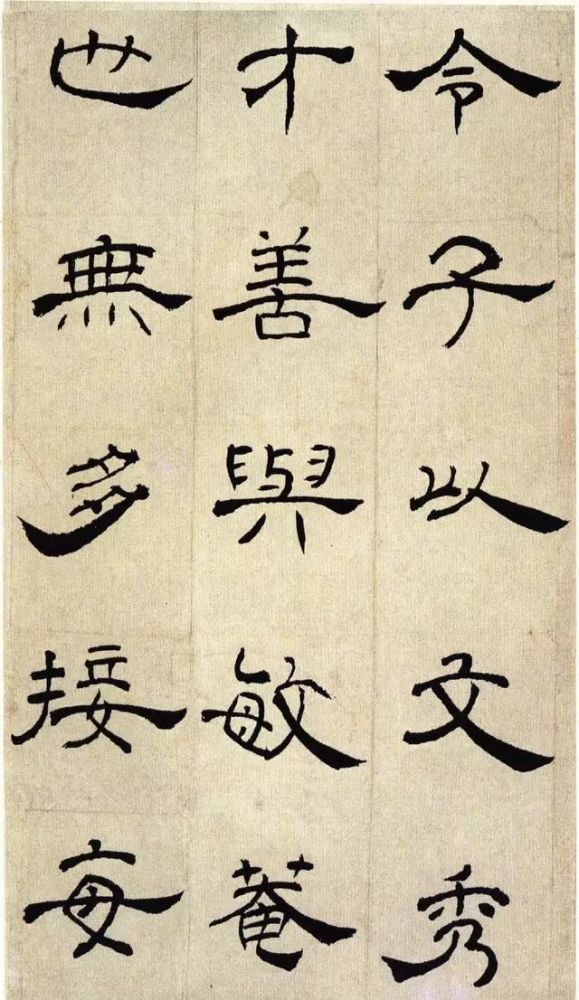 令子以文秀
才善與敏菴
也無多接每